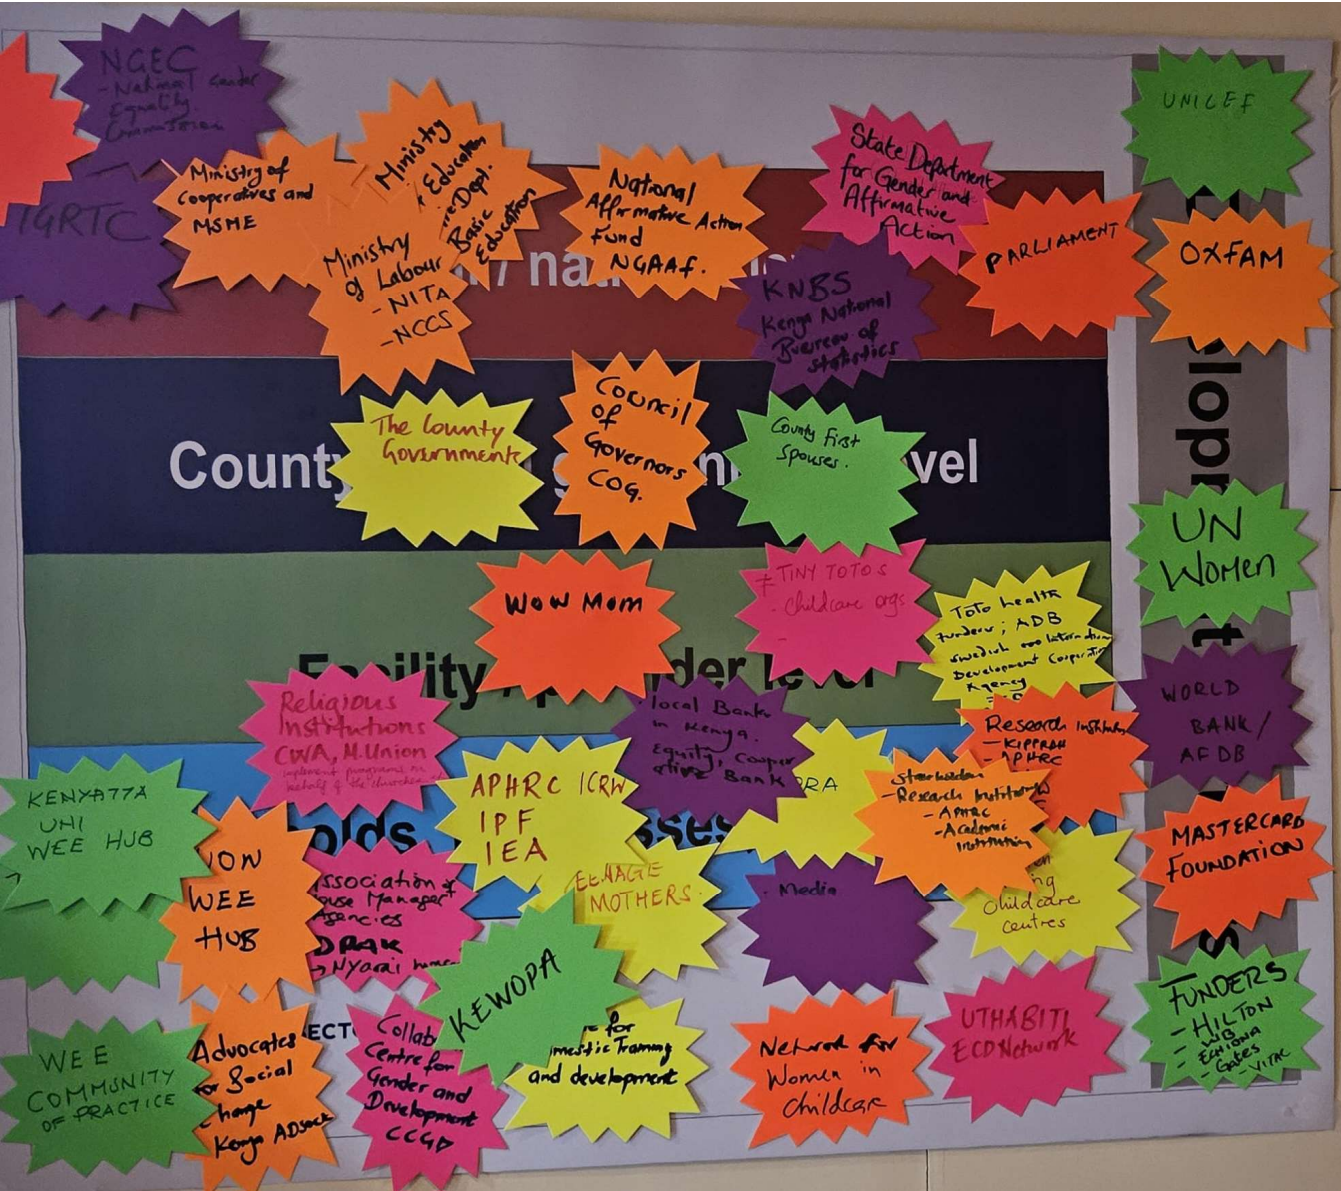 NGEC
- National Gender
Equality
Commission
IGRTC
Ministry of
Cooperatives and
MSME
Ministry
Education
Dept.
Basic
Education
Ministry
of Labour
- NITA
- NCCS
National
Affirmative Action
Fund
NGAAF.
State Department
for Gender and
Affirmative
Action
KNBS
Kenya National
Buereau of
Statistics
PARLIAMENT
UNICEF
OXFAM
The County
Governments
Council
of
Governors
COG.
County First
Spouses.
County
UN
Women
WOW Mom
TINY TOTOS
- Childcare orgs
Toto health
Funders; ADB
Swedish
Development
Agency
Religious
Institutions
CWA, M.Union
implement programs
behalf of the churches
local Banks
in Kenya.
Equity, Cooper
ative Bank
Research
- KIPPRAH
- APHRC
WORLD
BANK/
AFDB
KENYATTA
UNI
WEE HUB
WEE
HUB
APHRC ICRW
IPF
IEA
- Research
- APHRC
- Academic
institutions
MASTERCARD
FOUNDATION
Agencies
DRAK
→ Nyarai
MOTHERS.
Media
Childcare
centres
KEWOPA
FUNDERS
- HILTON
- WB
- ECHIDNA
- Gates
- VITAL
WEE
COMMUNITY
OF PRACTICE
Advocates
for Social
Change
Kenya ADSOCK
Collab
Centre for
Gender and
Development
CCGD
for
Training
and development
Network for
Women in
Childcare
UTHABITI
ECD Network